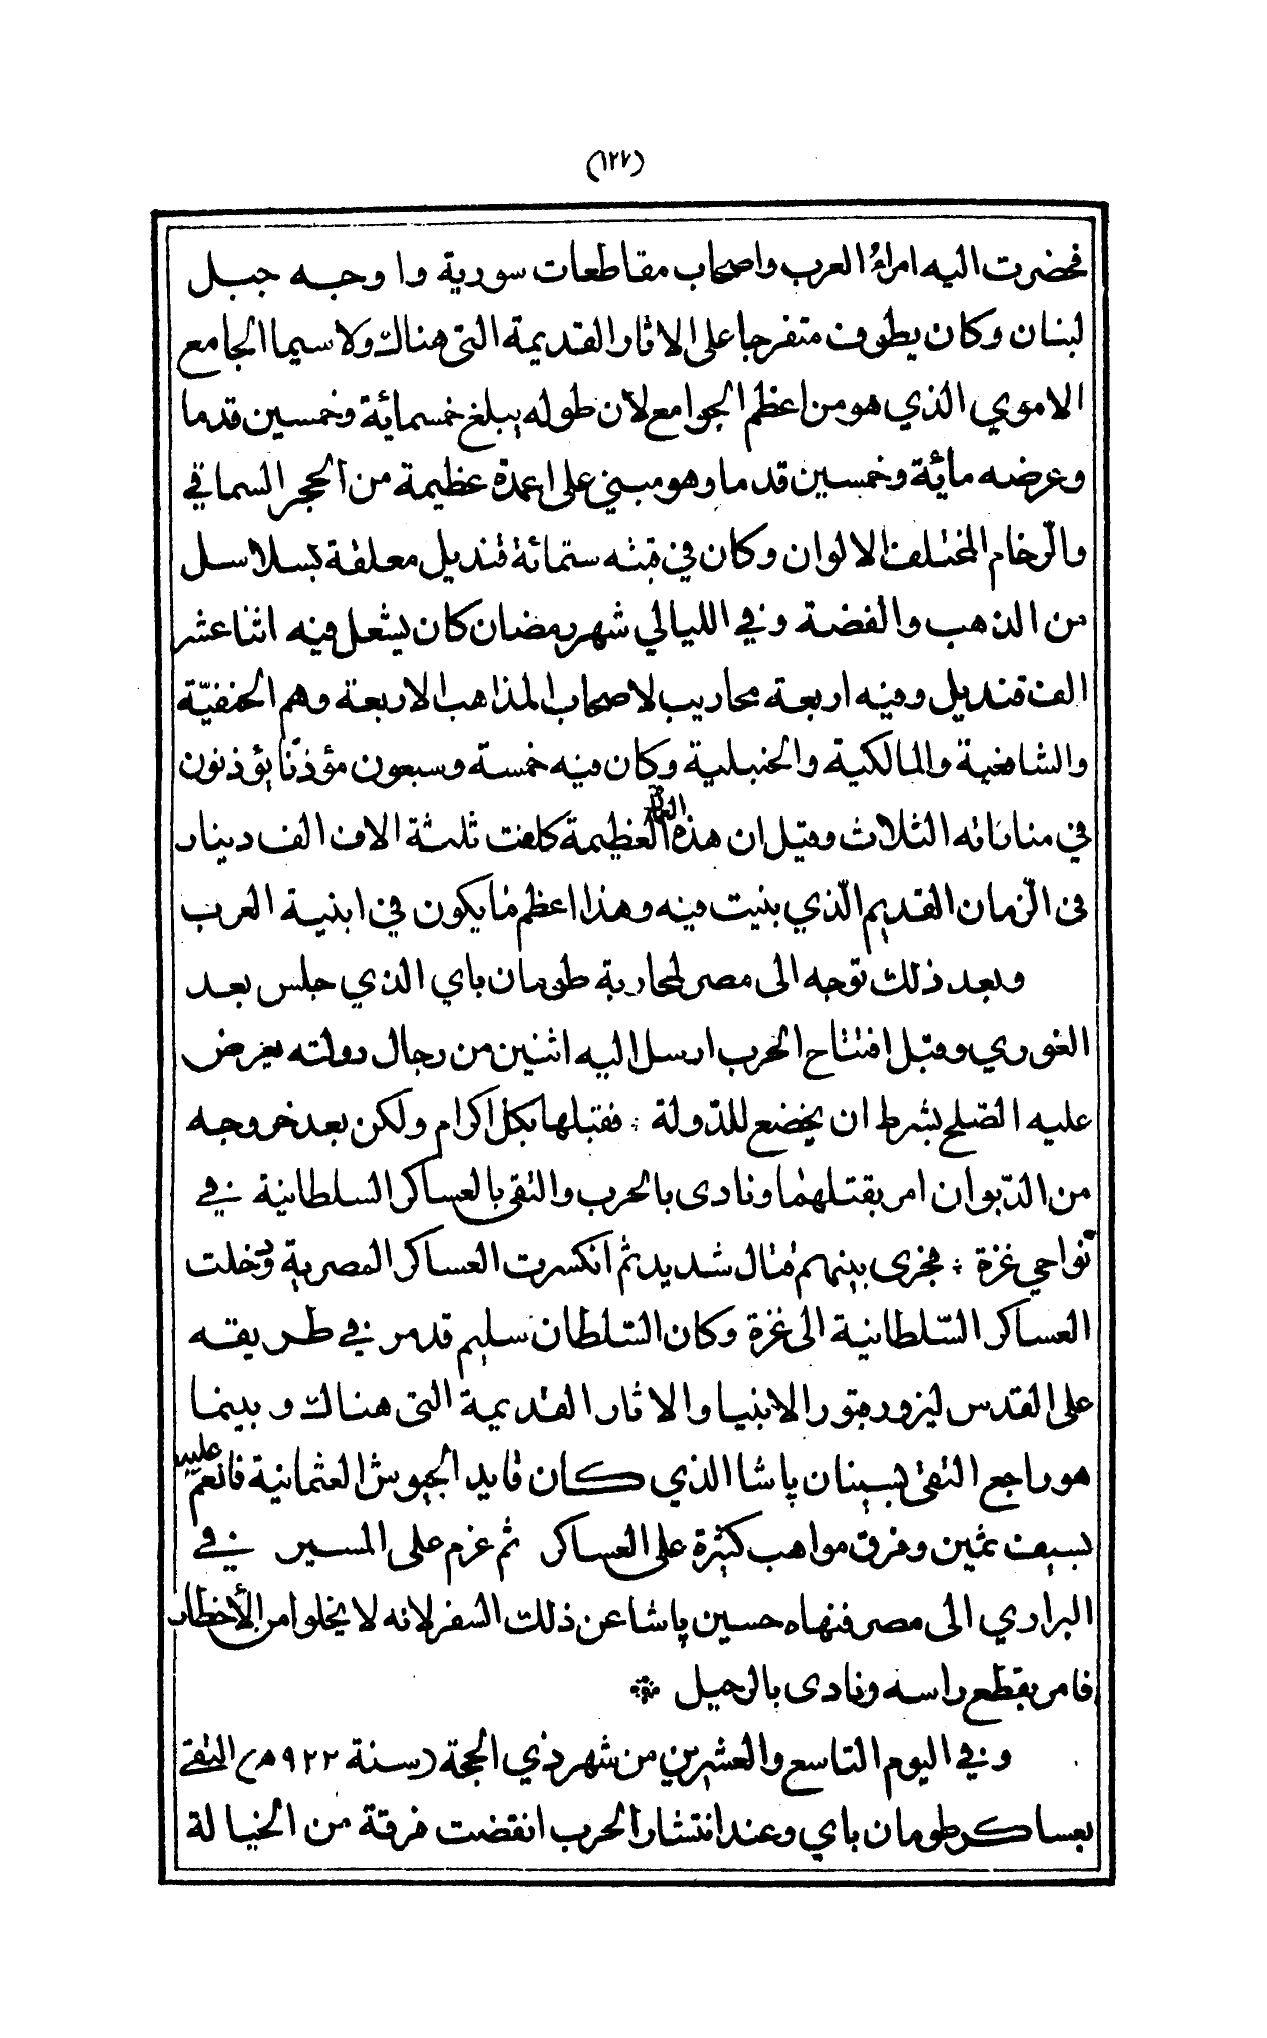 (١٢٧)
فحضرت اليه امراءُ العرب واصحاب مقاطعات سورية واوجه جبل
لبنان وكان يطوف متفرجا على الاثار القديمة التى هناك ولاسيما الجامع
الاموي الذي هو من اعظم الجوامع لان طوله يبلغ خمسمائة وخمسين قدما
وعرضه مائة وخمسين قدما وهو مبني على اعمدة عظيمة من الحجر السماقي
والرّخام المختلف الالوان وكان في قبته ستمائة قنديل معلقة بسلاسل
من الذهب والفضة وفي الليالي شهر رمضان كان يشعل فيه اثنا عشر
الف قنديل وفيه اربعة محاريب لاصحاب المذاهب الاربعة وهم الحنفيّة
والشافعية والمالكية والحنبلية وكان فيه خمسة وسبعون مؤذنّا يؤذنون
في مناراته الثلاث وقيل ان هذه العظيمة كلفت ثلثة الاف الف دينار
فى الزمان القديم الّذي بنيت فيه وهذا اعظم ما يكون في ابنية العرب
وبعد ذلك توجه الى مصر لمحاربة طومان باي الذي جلس بعد
الغوري وقبل افتتاح الحرب ارسل اليه اثنين من رجال دولته يعرض
عليه الصّلح بشرط ان يخضع للدّولة ؞ فقبلها بكل اكرام ولكن بعد خروجه
من الدّيوان امر بقتلهما ونادى بالحرب والتقى بالعساكر السلطانية في
نواحي غزة ؞ فجرى بينهم قتال شديد ثم انكسرت العساكر المصرية ودخلت
العساكر السّلطانية الى غزة وكان السّلطان سليم قد مر في طريقه
على القدس ليزور قبور الانبيا والاثار القديمة التى هناك وبينما
هو راجع التقى بسينان پاشا الذي كان قايد الجيوش العثمانية فانعم عليه
بسيف ثمين وفرق مواهب كثيرة على العساكر ثم عزم على المسير في
البراري الى مصر فنهاه حسين پاشا عن ذلك السفر لانه لا يخلوا من الأخطار
فامر بقطع راسه ونادى بالرحيل ※
وفي اليوم التاسع والعشرين من شهر ذي الحجة (سنة ٩٢٢هـ) التقى
بعساكر طومان باي وعند انتشار الحرب انقضت فرقة من الخيالة